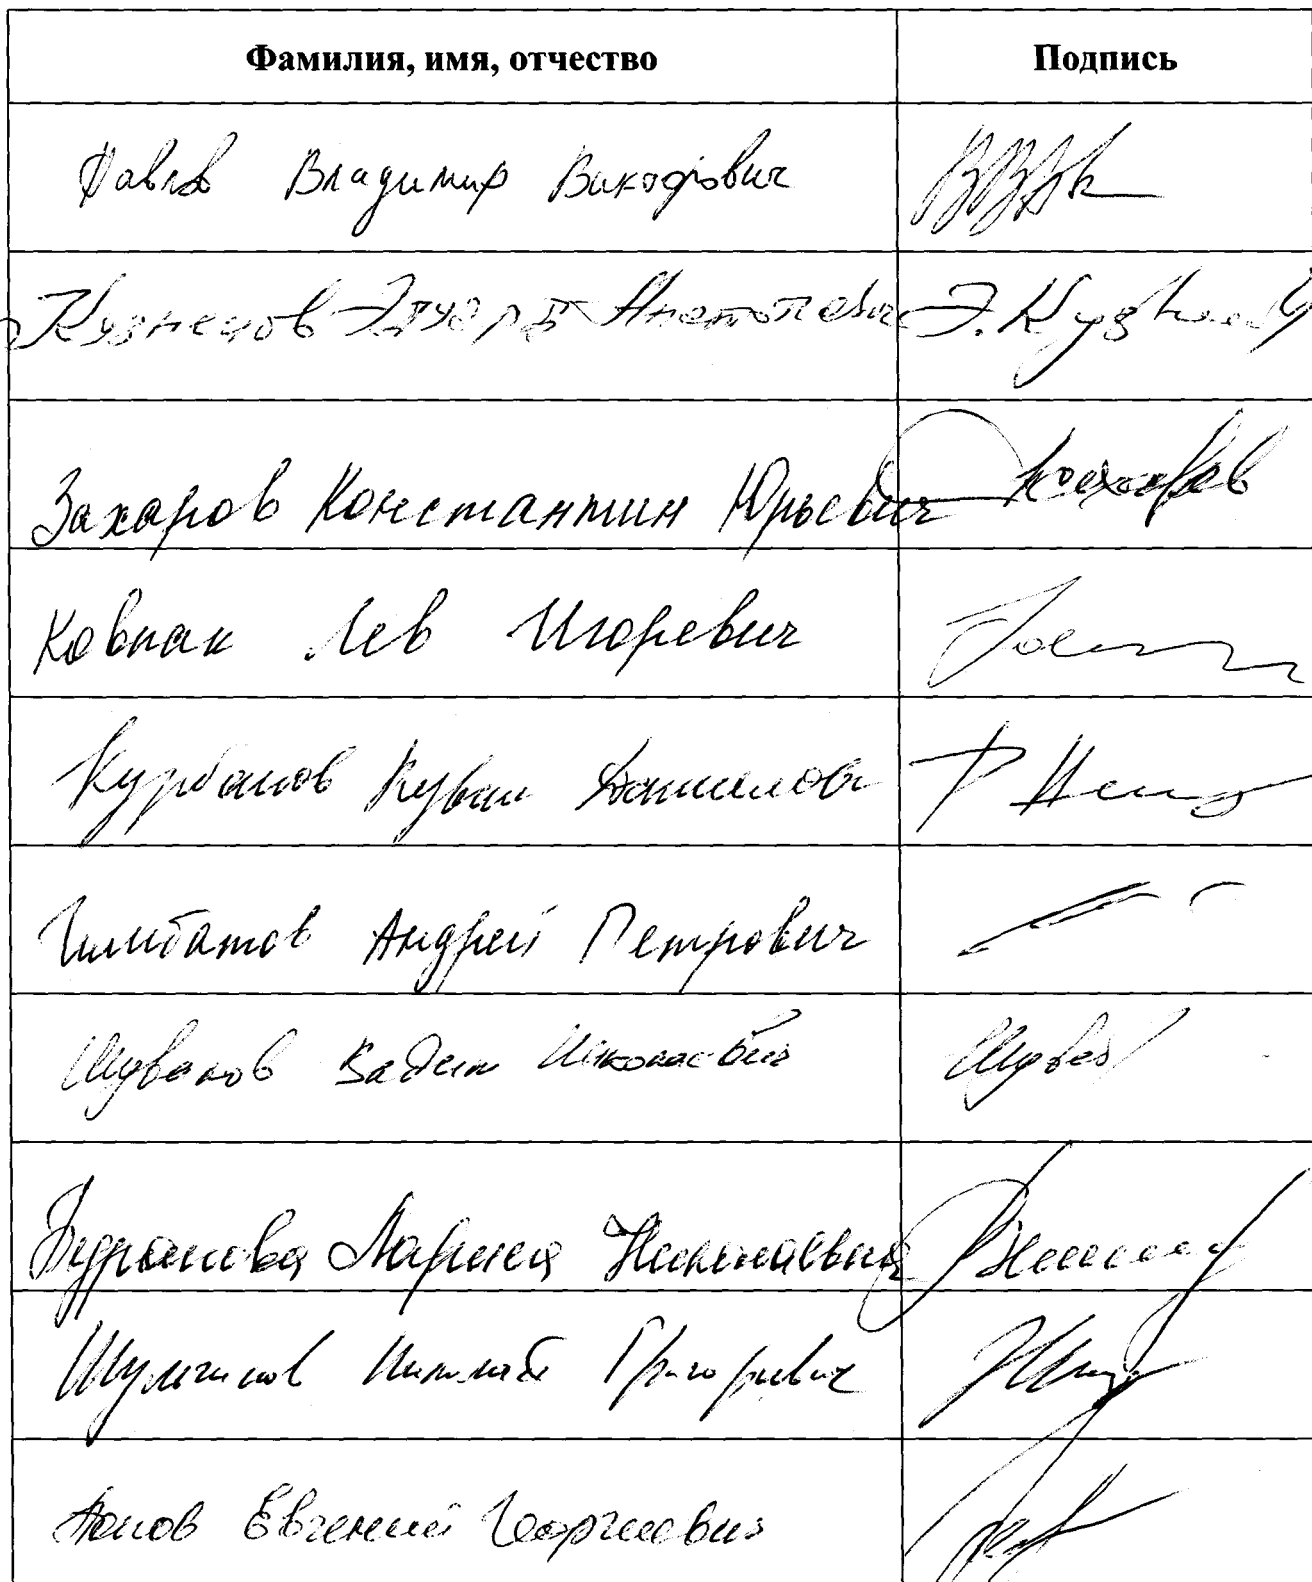 Фамилия, имя, отчество Подпись
Павлов Владимир Викторович
Кузнецов Эдуард Анатольевич Э. Кузнец
Захаров Константин Юрьевич
Ковпак Лев Игоревич
Курбанов
Гимбатов Андрей Петрович
Шувалов Вадим Николаевич
Лариса Николаевна
Шульгинов Николай Григорьевич
Евгений Георгиевич